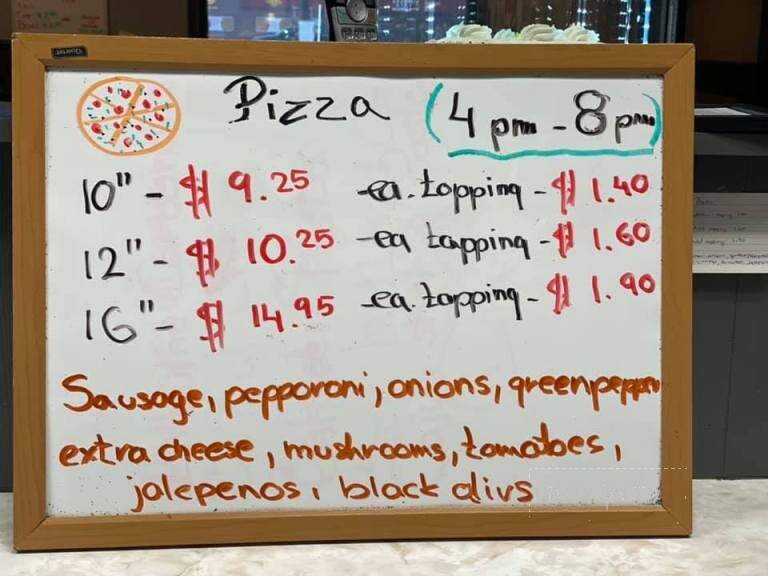 Quartet
Pizza (4pm - 8pm)
10" - $ 9.25 -ea. topping - $ 1.40
12" - $ 10.25 -ea tapping - $ 1.60
16" - $ 14.95 -ea. topping - $ 1.90
Sausage, pepporoni, onions, greenpepper
extra cheese, mushrooms, tomatoes,
jalepenos, black olivs